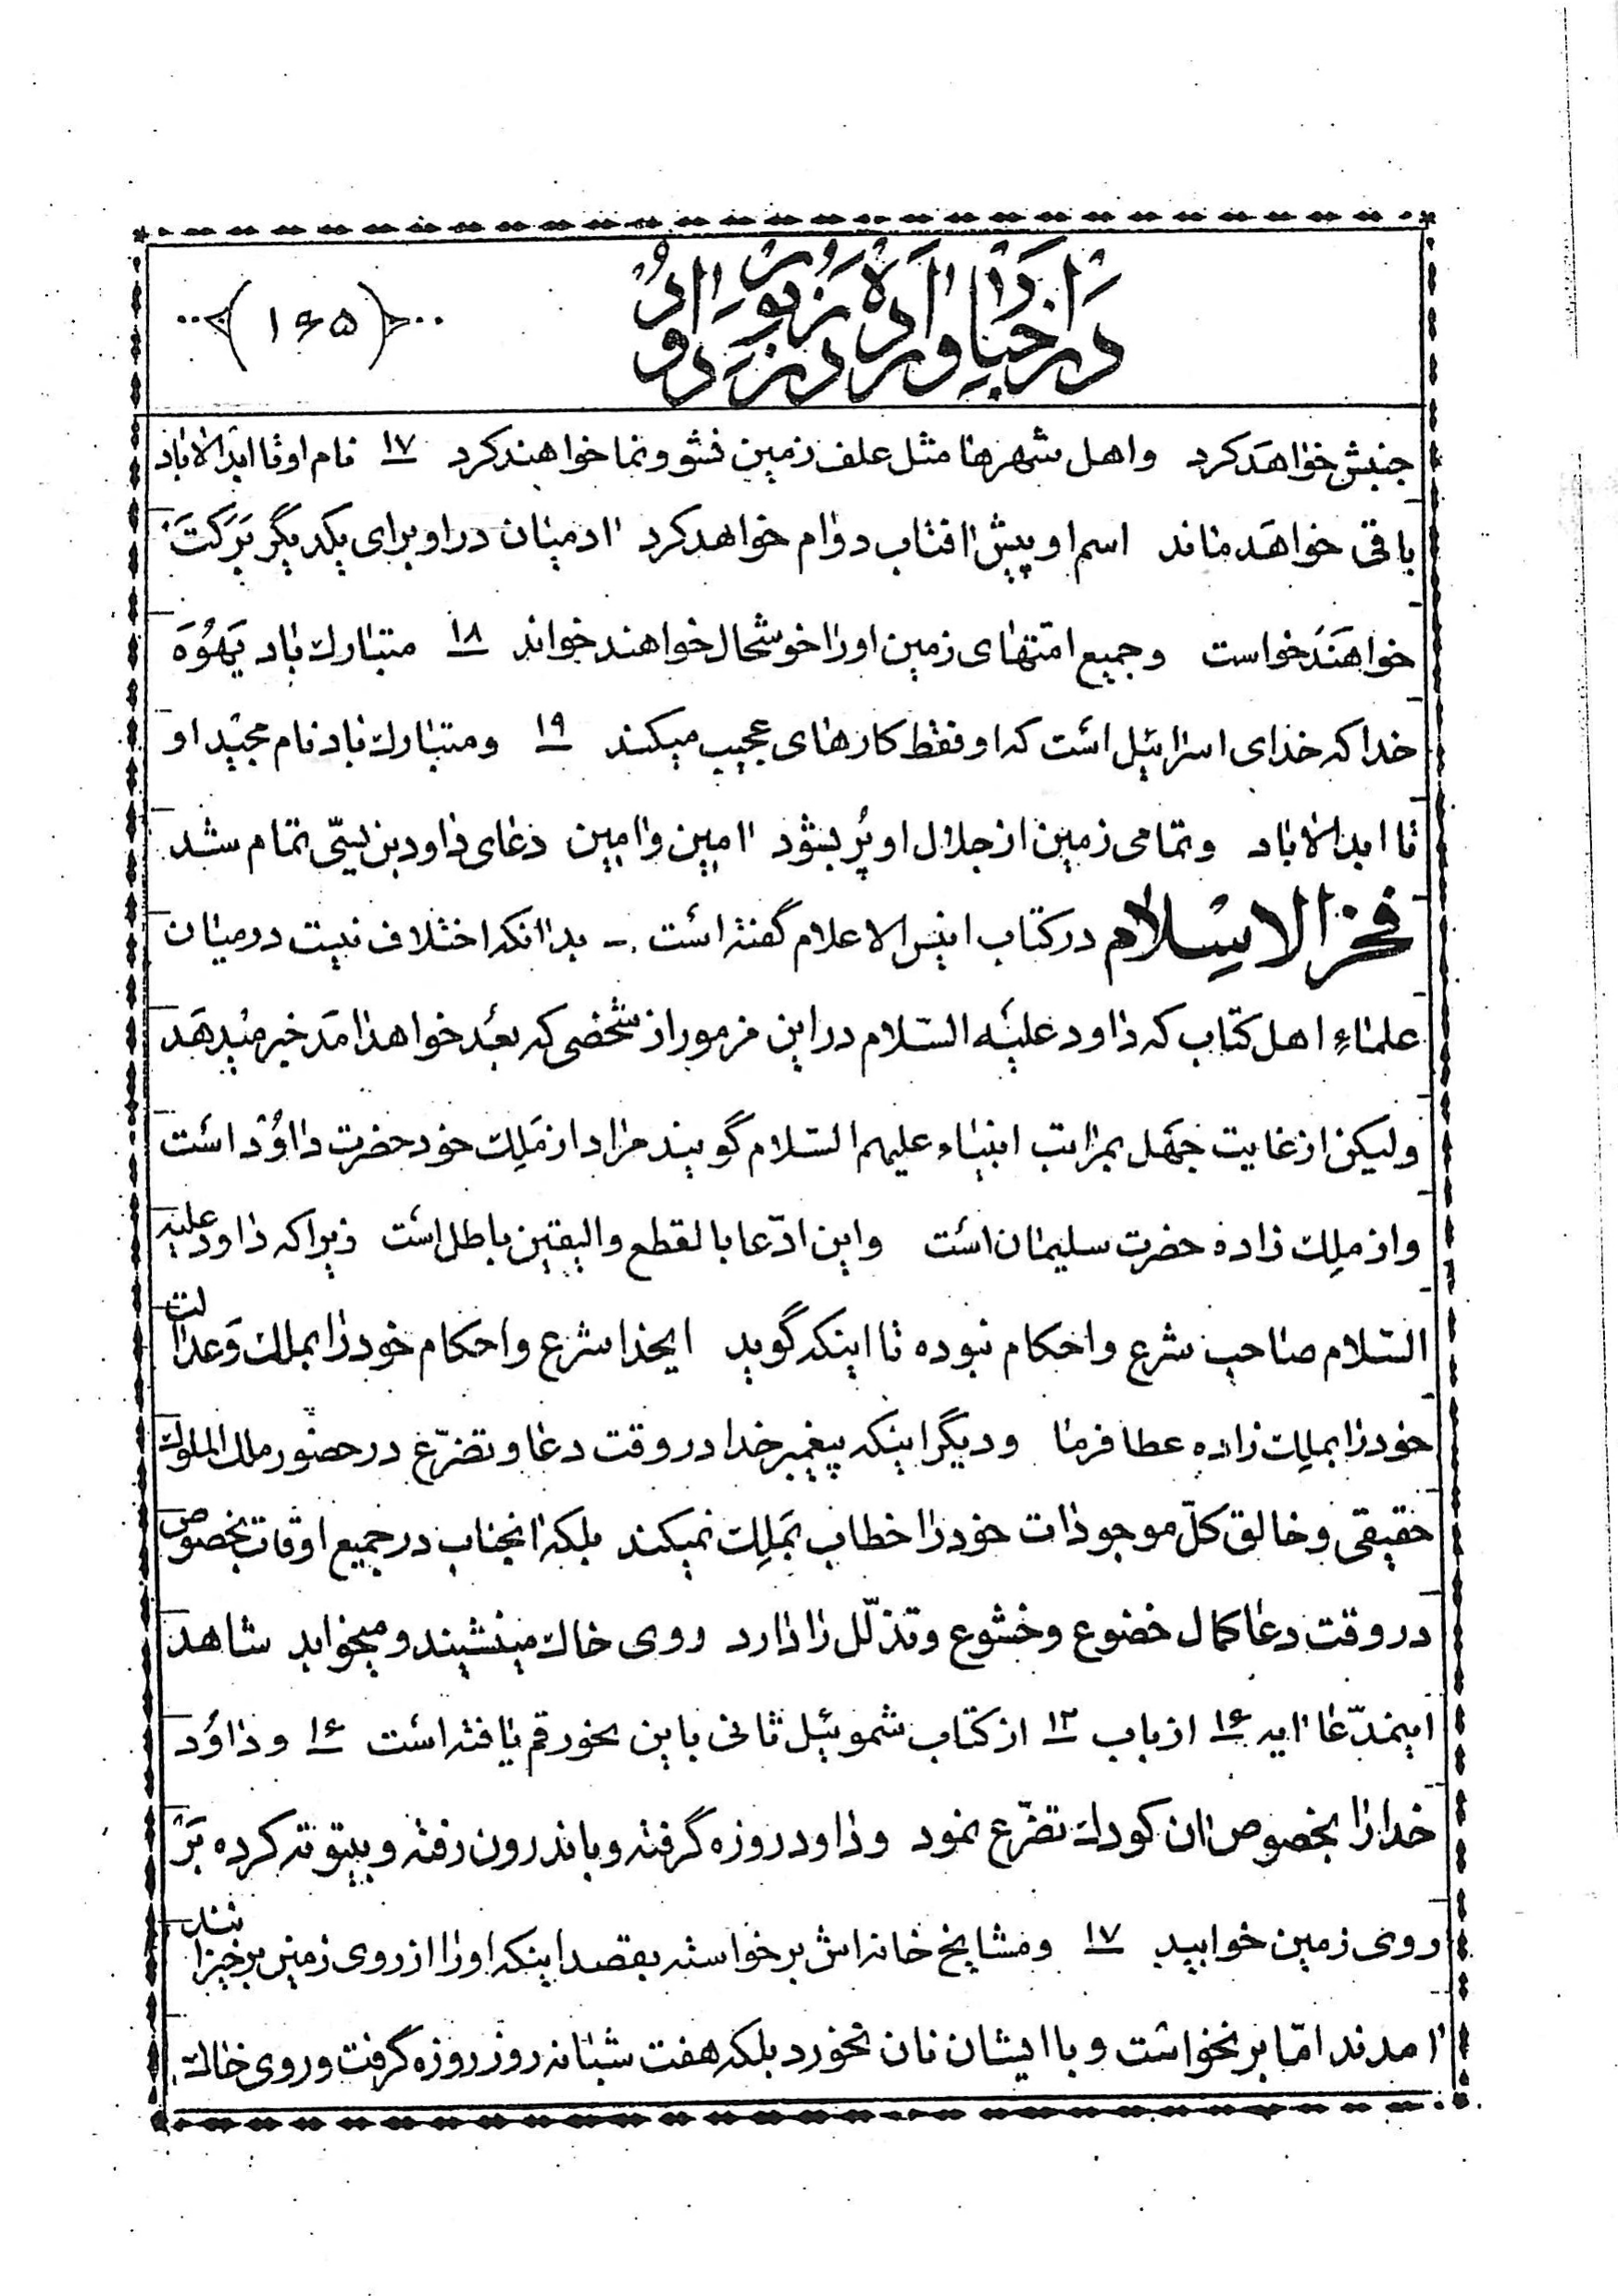 در اخبار وارده در زبور داود
(۱۶۵)
جنبش خواهَد کرد واهل شهرها مثل علف زمین نشو ونما خواهند کرد ۱۷ نام او تا ابد الاباد
باقی خواهَد ماند اسم او پیش افتاب دوام خواهد کرد ادمیان در او برای یکدیگر بَرَکَت
خواهَند خواست وجمیع امّتهای زمین اورا خوشحال خواهند خواند ۱۸ متبارك باد یَهُوَه
خدا که خدای اسرائیل است که او فقط کارهای عجیب میکند ۱۹ ومتبارك باد نام مجید او
تا ابد الاباد وتمامی زمین از جلال او پُر بشود امین وامین دعای داود بن یسّی تمام شد
فخر الاسلام در کتاب انیس الاعلام گفته است :ـ بدانکه اختلاف نیست در میان
علماءِ اهل کتاب که داود علیه السّلام در این مزمور از شخصی که بعد خواهد امَد خبر میدهَد
ولیکن از غایت جَهَل بمراتب انبیاء علیهم السّلام گویند مراد از مَلِك خود حضرت داوُد است
واز ملِك زاده حضرت سلیمان است واین ادّعا بالقطع والیقین باطل است زیرا که داود علیه
السّلام صاحب شرع واحکام نبوده تا اینکه گوید ایخدا شرع واحکام خود را بملك وَعدالت
خود را بملِك زاده عطا فرما ودیگر اینکه پیغمبر خدا در وقت دعا وتضرّع در حضور ملك الملوك
حقیقی وخالق کلّ موجودات خود را خطاب بمَلِك نمیکند بلکه انجناب در جمیع اوقات بخصوص
در وقت دعا کمال خضوع وخشوع وتذلّل را دارد روی خاك مینشیند ومیخوابد شاهد
اینمدّعا ایه ۱۶ از باب ۱۲ از کتاب شموئیل ثانی باین نحو رقم یافته است ۱۶ وداوُد
خدارا بخصوص ان کودك تضرّع نمود وداود روزه گرفته وباندرون رفته وبیتوته کرده بَر
روی زمین خوابید ۱۷ ومشایخ خانه اش برخواسته بقصد اینکه اورا از روی زمین برخیزانند
امدند امّا برنخواست وبا ایشان نان نخورد بلکه هفت شبانه روز روزه گرفت وروی خاك